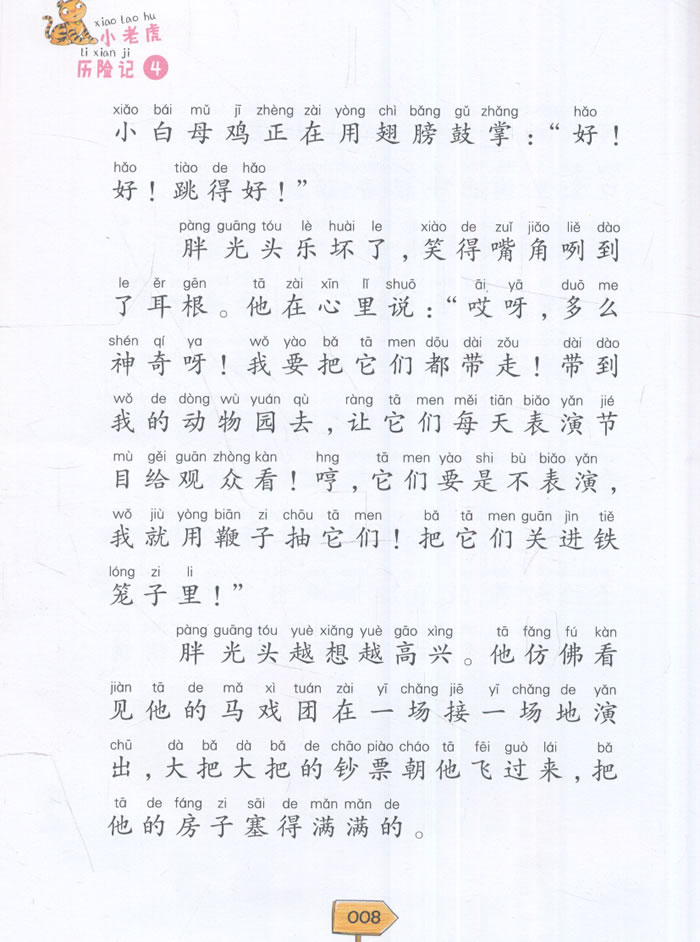 xiao lao hu
小老虎
li xian ji
历险记 4
xiǎo bái mǔ jī zhèng zài yòng chì bǎng gǔ zhǎng hǎo
小白母鸡正在用翅膀鼓掌：“好！
hǎo tiào de hǎo
好！跳得好！”
pàng guāng tóu lè huài le xiào de zuǐ jiǎo liě dào
胖光头乐坏了，笑得嘴角咧到
le ěr gēn tā zài xīn lǐ shuō āi yā duō me
了耳根。他在心里说：“哎呀，多么
shén qí ya wǒ yào bǎ tā men dōu dài zǒu dài dào
神奇呀！我要把它们都带走！带到
wǒ de dòng wù yuán qù ràng tā men měi tiān biǎo yǎn jié
我的动物园去，让它们每天表演节
mù gěi guān zhòng kàn hng tā men yào shi bù biǎo yǎn
目给观众看！哼，它们要是不表演，
wǒ jiù yòng biān zi chōu tā men bǎ tā men guān jìn tiě
我就用鞭子抽它们！把它们关进铁
lóng zi li
笼子里！”
pàng guāng tóu yuè xiǎng yuè gāo xìng tā fǎng fú kàn
胖光头越想越高兴。他仿佛看
jiàn tā de mǎ xì tuán zài yī chǎng jiē yī chǎng de yǎn
见他的马戏团在一场接一场地演
chū dà bǎ dà bǎ de chāo piào cháo tā fēi guò lái bǎ
出，大把大把的钞票朝他飞过来，把
tā de fáng zi sāi de mǎn mǎn de
他的房子塞得满满的。
008